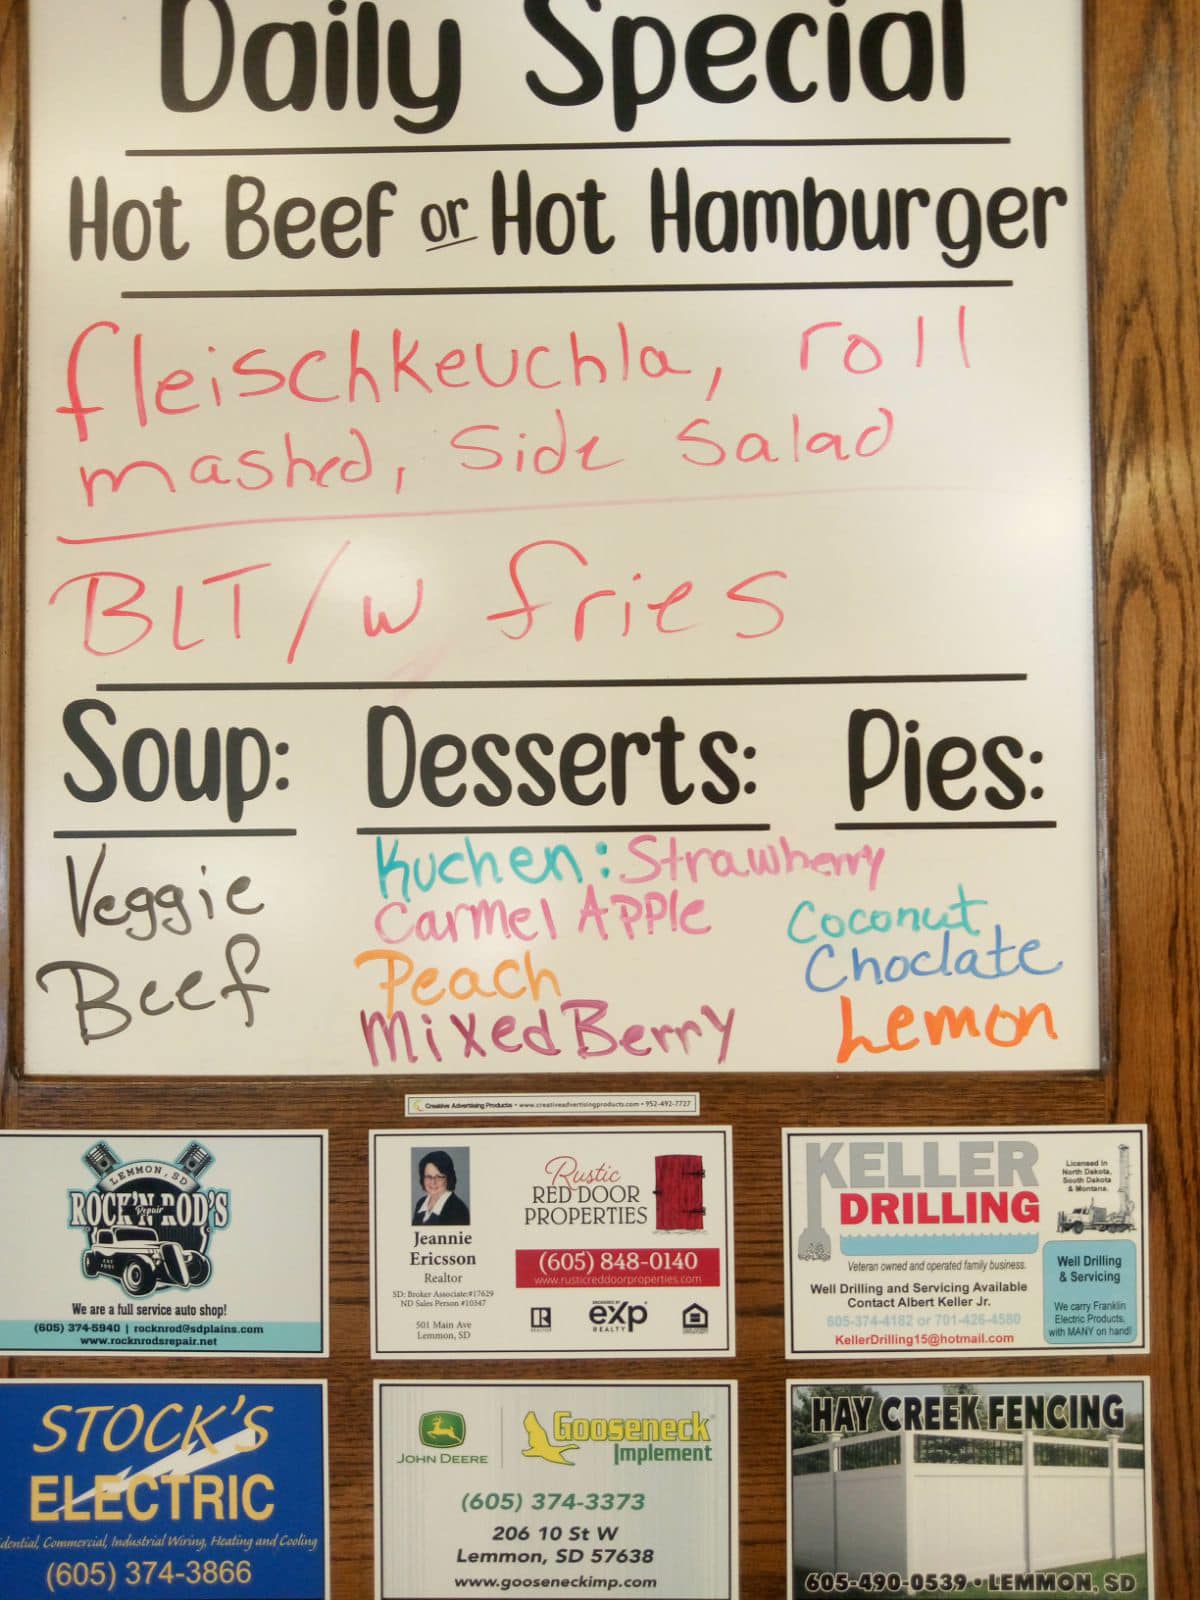 Daily Special
Hot Beef or Hot Hamburger
fleischkeuchla, roll
mashed, side salad
BLT/w fries
Soup:
Veggie
Beef
Desserts:
Kuchen: Strawberry
Carmel Apple
Peach
Mixed Berry
Pies:
Coconut
Choclate
Lemon
Creative Advertising Products • www.creativeadvertisingproducts.com • 952-492-7727
LEMMON, SD
ROCK'N ROD'S
Repair
We are a full service auto shop!
(605) 374-5940 | rocknrod@sdplains.com
www.rocknrodsrepair.net
Jeannie
Ericsson
Realtor
SD: Broker Associate:#17629
ND Sales Person #10347
501 Main Ave
Lemmon, SD
Rustic
RED DOOR
PROPERTIES
(605) 848-0140
www.rusticreddoorproperties.com
REALTOR
exp
REALTY
KELLER
DRILLING
Licensed in
North Dakota,
South Dakota
& Montana.
Veteran owned and operated family business.
Well Drilling and Servicing Available
Contact Albert Keller Jr.
605-374-4182 or 701-426-4580
KellerDrilling15@hotmail.com
Well Drilling
& Servicing
We carry Franklin
Electric Products,
with MANY on hand!
STOCK'S
ELECTRIC
dential, Commercial, Industrial Wiring, Heating and Cooling
(605) 374-3866
JOHN DEERE
Gooseneck
Implement
(605) 374-3373
206 10 St W
Lemmon, SD 57638
www.gooseneckimp.com
HAY CREEK FENCING
605-490-0539 • LEMMON, SD